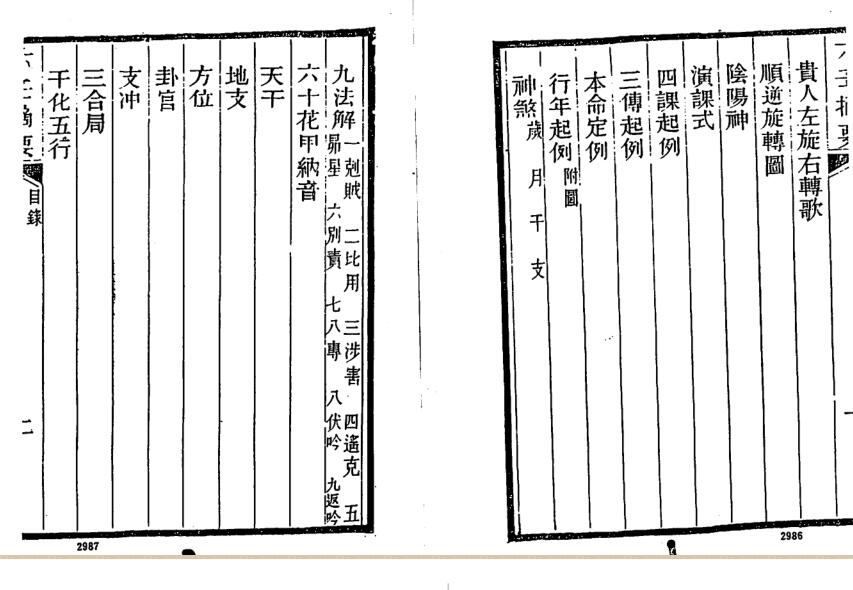 貴人左旋右轉歌
順逆旋轉圖
陰陽神
演課式
四課起例
三傳起例
本命定例
行年起例 附圖
神煞 歲 月 干 支
2986
九法解 一剋賊 二比用 三涉害 四遙克 五
昴星 六別責 七八專 八伏吟 九返吟
六十花甲納音
天干
地支
方位
卦宮
支冲
三合局
干化五行
六壬摘要 目錄 二
2987